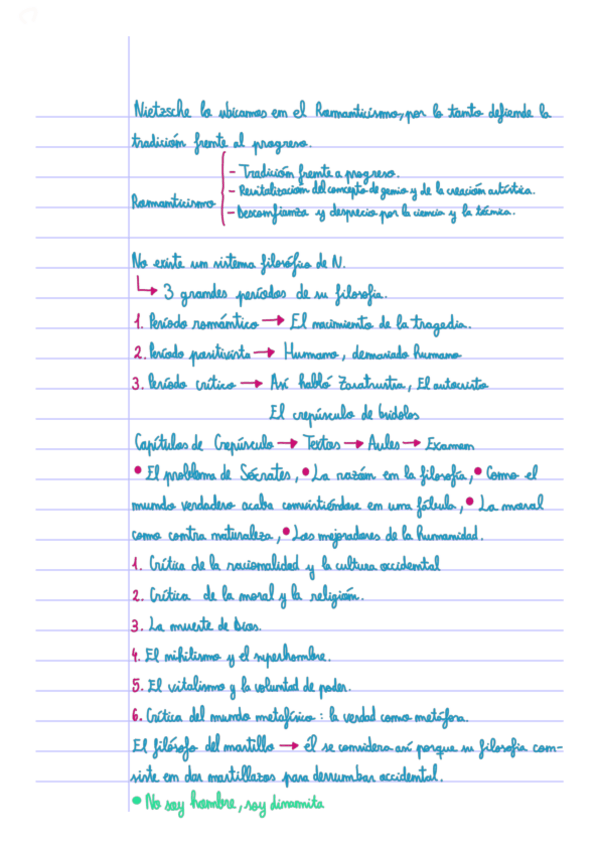 Nietzsche lo ubicamos en el Romanticismo, por lo tanto defiende la
tradición frente al progreso.
Romanticismo
- Tradición frente a progreso.
- Revitalización del concepto de genio y de la creación artística.
- Desconfianza y desprecio por la ciencia y la técnica.
No existe un sistema filosófico de N.
↳ 3 grandes períodos de su filosofía.
1. Período romántico → El nacimiento de la tragedia.
2. Período positivista → Humano, demasiado humano
3. Período crítico → Así habló Zaratustra, El autocrista
El crepúsculo de bidolos
Capítulos de Crepúsculo → Textos → Aules → Examen
• El problema de Sócrates, • La razón en la filosofía, • Como el
mundo verdadero acaba convirtiéndose en una fábula, • La moral
como contra naturaleza, • Los mejoradores de la humanidad.
1. Crítica de la racionalidad y la cultura occidental
2. Crítica de la moral y la religión.
3. La muerte de Dios.
4. El nihilismo y el superhombre.
5. El vitalismo y la voluntad de poder.
6. Crítica del mundo metafísico: la verdad como metáfora.
El filósofo del martillo → él se considera así porque su filosofía con-
siste en dar martillazos para derrumbar occidental.
• No soy hombre, soy dinamita